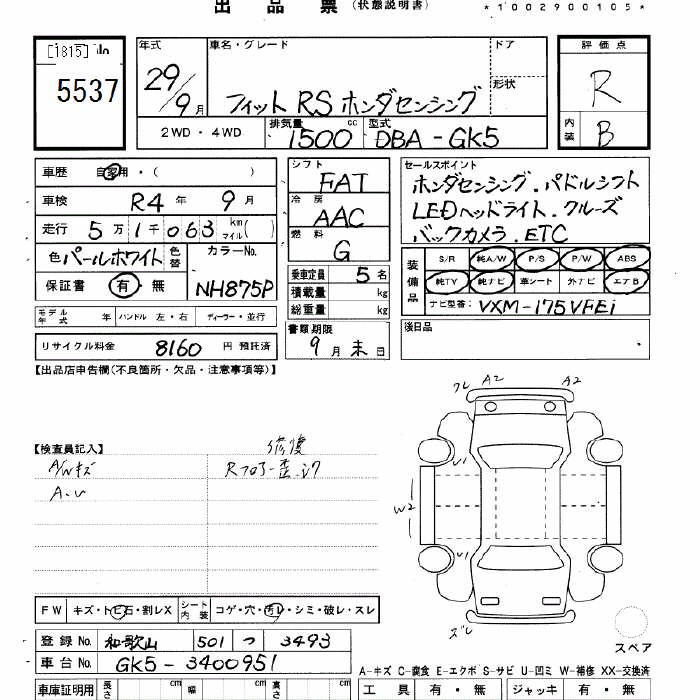 出品票 (状態説明書) *1002900105*
[1815] 5537
年式 29/9月
車名・グレード フィット RS ホンダセンシング
ドア
形状
評価点 R
内装 B
2WD・4WD
排気量 1500 cc
型式 DBA-GK5
車歴 自家用・( )
車検 R4年 9月
走行 5万 1千 063 km マイル( )
色 パールホワイト 色替
カラーNo. NH875P
保証書 有・無
シフト FAT
冷房 AAC
燃料 G
乗車定員 5名
積載量 kg
総重量 kg
書類期限 9月末日
セールスポイント
ホンダセンシング.パドルシフト
LEDヘッドライト.クルーズ
バックカメラ.ETC
装備品 S/R 純A/W P/S P/W ABS
純TV 純ナビ 革シート 外ナビ エアB
ナビ型番: VXM-175VFEi
後日品
モデル年式 年 ハンドル 左・右 ディーラー・並行
リサイクル料金 8160 円 預託済
【出品店申告欄(不良箇所・欠品・注意事項等)】
【検査員記入】 修復
A/Wキズ Rフロアー歪.シワ
A.U
クレ A2 A2
U1
W2
U1
ズレ
スペア
FW キズ・トビ石・割レX シート内装 コゲ・穴・汚レ・シミ・破レ・スレ
登録No. 和歌山 501 つ 3493
車台No. GK5-3400951
A-キズ C-腐食 E-エクボ S-サビ U-凹ミ W-補修 XX-交換済
車庫証明用 長さ cm 幅 cm 高さ cm
工具 有・無 ジャッキ 有・無